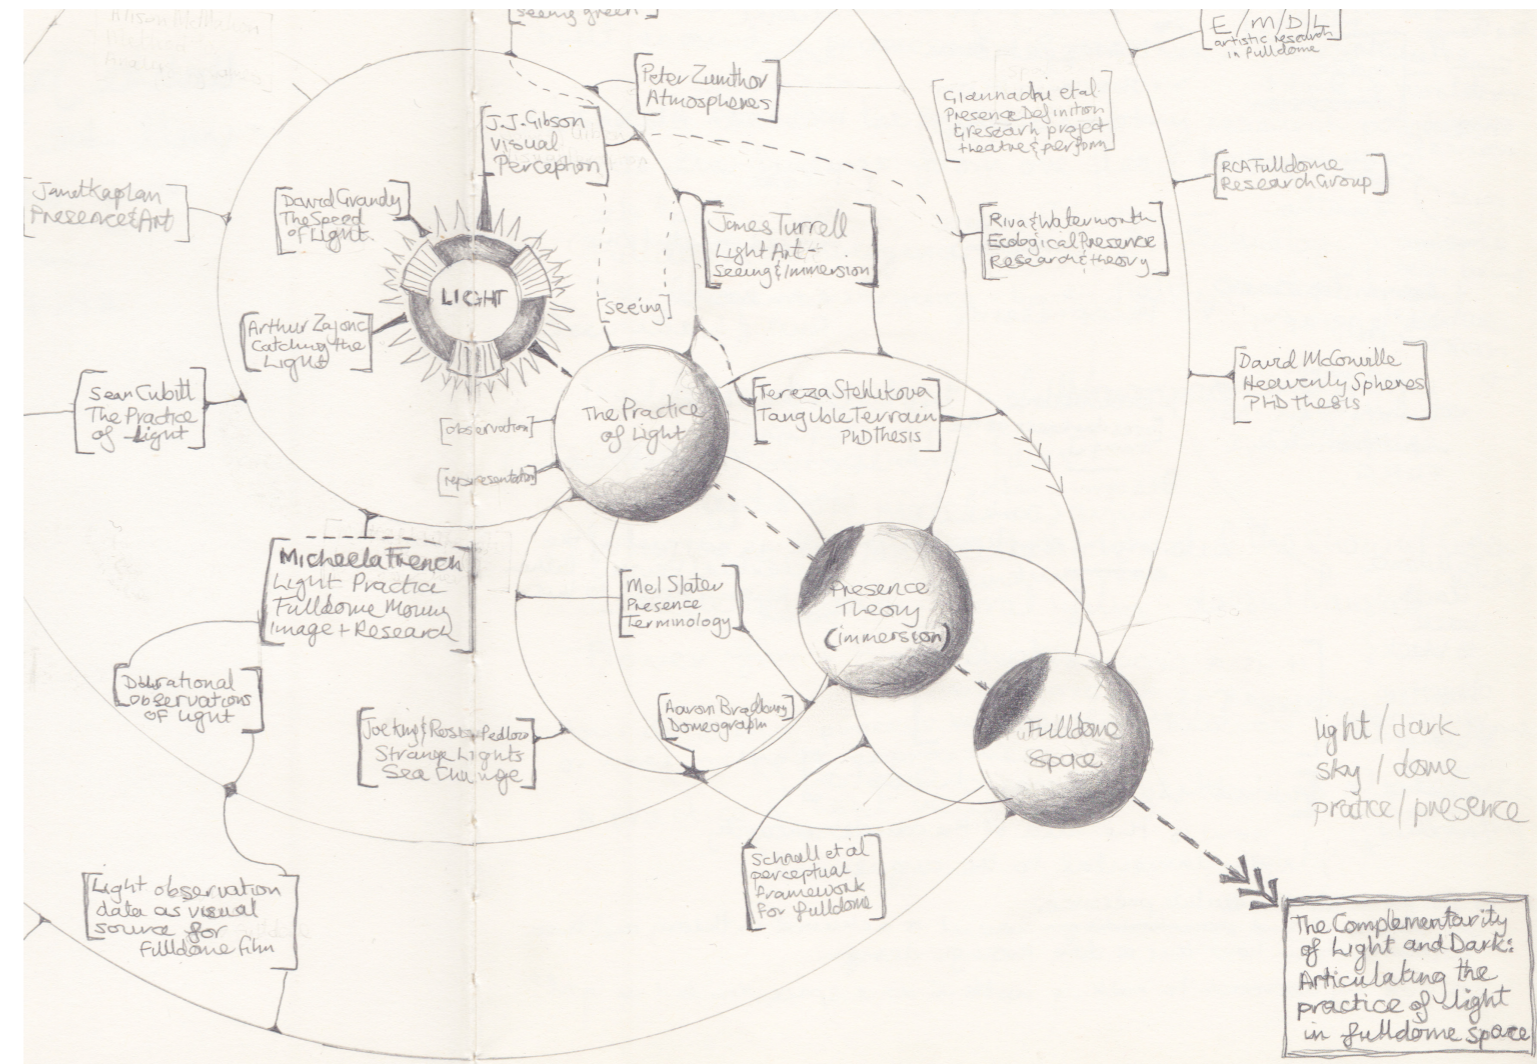 seeing green
E/M/D/L
artistic research
in fulldome
Peter Zumthor
Atmospheres
Giannachi et al
Presence Definition
& research project
theatre & perform
J.J. Gibson
Visual
Perception
RCA Fulldome
Research Group
Janet Kaplan
Presence & Art
David Grandy
The Speed
of Light
James Turrell
Light Art -
Seeing & Immersion
Riva & Waterworth
Ecological Presence
Research & theory
LIGHT
[seeing]
Arthur Zajonc
Catching the
Light
David McConville
Heavenly Spheres
PHD thesis
Sean Cubitt
The Practice
of Light
The Practice
of Light
Tereza Stehlikova
Tangible Terrain
PhD Thesis
[observation]
[representation]
Micheela French
Light Practice
Fulldome Moving
Image + Research
Mel Slater
Presence
Terminology
Presence
Theory
(immersion)
Durational
observations
of light
Joe King & Rosie Pedlow
Strange Lights
Sea Change
Aaron Bradbury
Domeograph
Fulldome
Space
light / dark
sky / dome
practice / presence
Schnall et al
perceptual
framework
for fulldome
Light observation
data as visual
source for
fulldome film
The Complementarity
of Light and Dark:
Articulating the
practice of light
in fulldome space